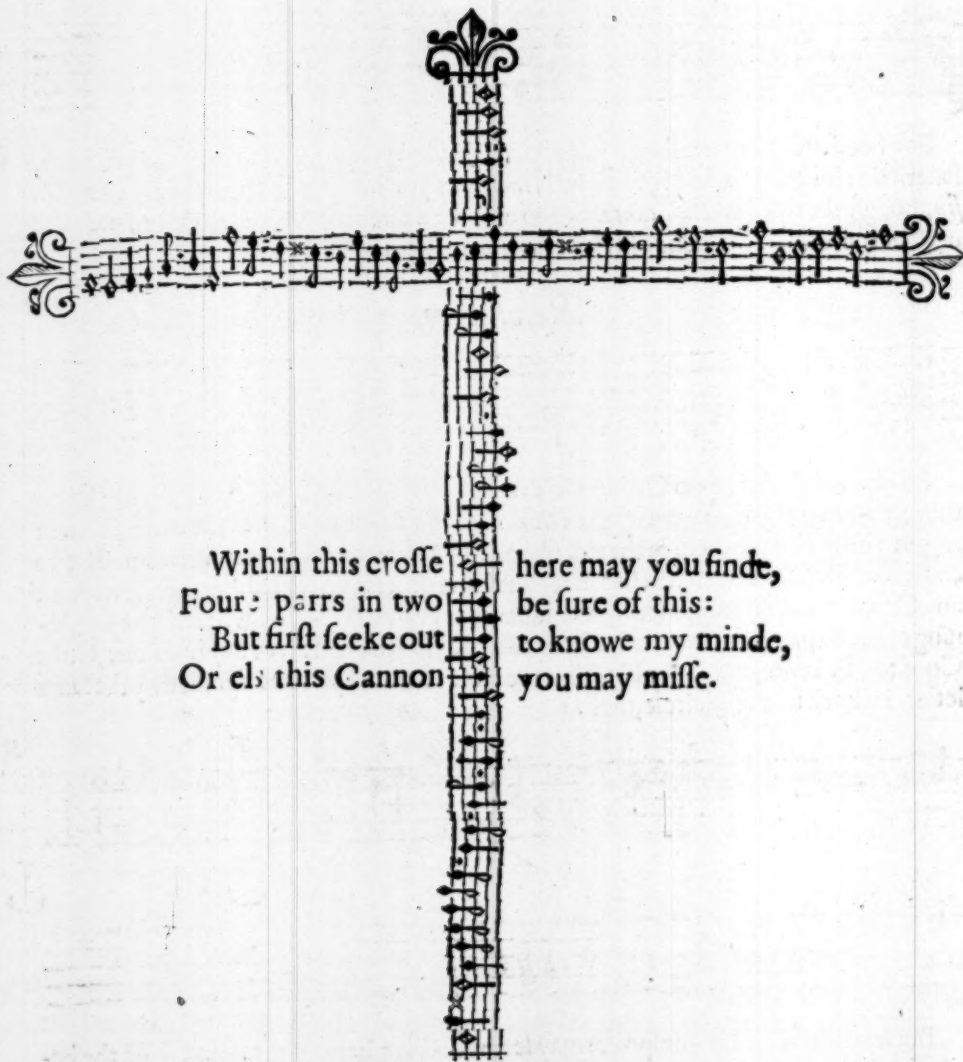 Within this crosse here may you finde,
Foure parrs in two be sure of this:
But first seeke out to knowe my minde,
Or els this Cannon you may misse.